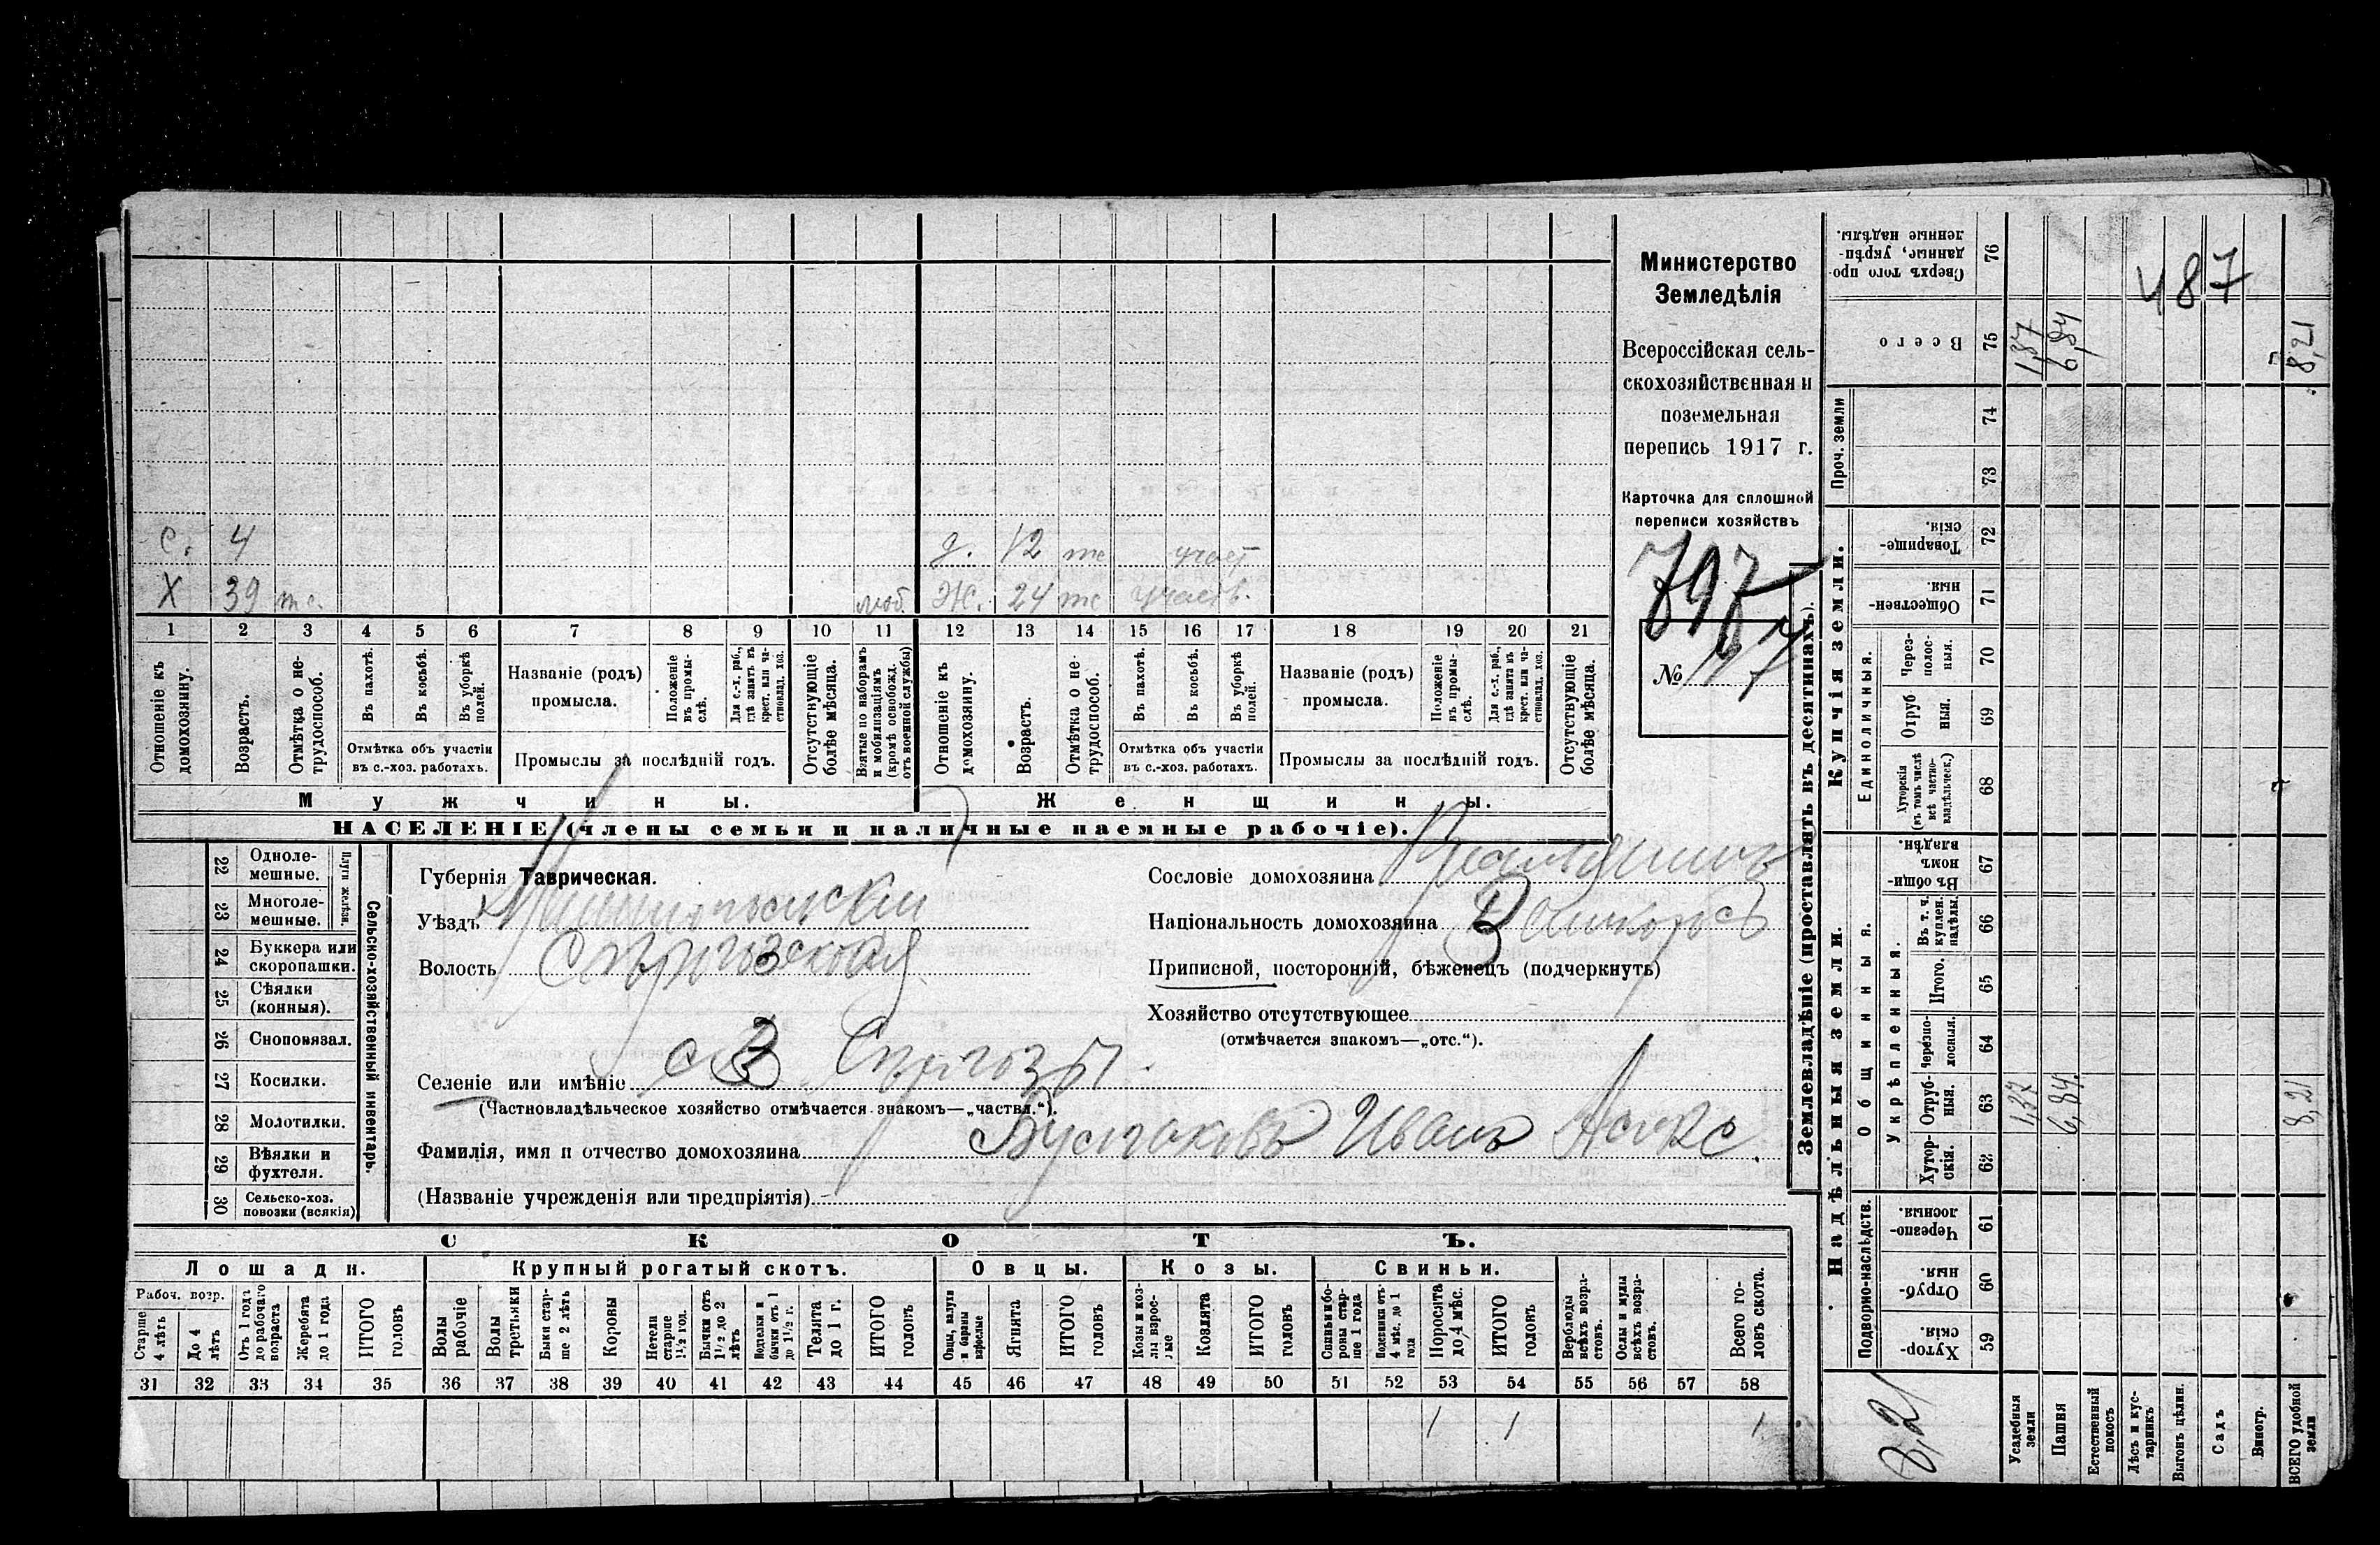 с. 4 д. 12 те участ
Х 39 те. моб. Ж. 24 те участв.
1 2 3 4 5 6 7 8 9 10 11 12 13 14 15 16 17 18 19 20 21
Отношеніе къ домохозяину.
Возрастъ.
Отмѣтка о нетрудоспособ.
Въ пахотѣ.
Въ косьбѣ.
Въ уборкѣ полей.
Отмѣтка объ участіи
въ с.-хоз. работахъ.
Названіе (родъ)
промысла.
Положеніе въ промыслѣ.
Для с.-х. раб., гдѣ занятъ въ крест. или частновлад. хоз.
Промыслы за послѣдній годъ.
Отсутствующіе болѣе мѣсяца.
Взятые по наборамъ и мобилизаціямъ (кромѣ освобожд. отъ военной службы)
Отношеніе къ домохозяину.
Возрастъ.
Отмѣтка о нетрудоспособ.
Въ пахотѣ.
Въ косьбѣ.
Въ уборкѣ полей.
Отмѣтка объ участіи
въ с.-хоз. работахъ.
Названіе (родъ)
промысла.
Положеніе въ промыслѣ.
Для с.-х. раб., гдѣ занята въ крест. или частновлад. хоз.
Промыслы за послѣдній годъ.
Отсутствующіе болѣе мѣсяца.
Мужчины. Женщины.
НАСЕЛЕНІЕ (члены семьи и наличные наемные рабочіе).
Министерство
Земледѣлія
Всероссійская сель-
скохозяйственная и
поземельная
перепись 1917 г.
Карточка для сплошной
переписи хозяйствъ
797
№ 177
22 Однолемешные.
23 Многолемешные.
Плуги желѣзн.
24 Буккера или скоропашки.
25 Сѣялки (конныя).
26 Сноповязал.
27 Косилки.
28 Молотилки.
29 Вѣялки и фухтеля.
30 Сельско-хоз. повозки (всякія)
Сельско-хозяйственный инвентарь.
Губернія Таврическая.
Уѣздъ
Волость
Селеніе или имѣніе с.
(Частновладѣльческое хозяйство отмѣчается знакомъ—„частвл.“).
Фамилія, имя и отчество домохозяина Иванъ
(Названіе учрежденія или предпріятія)
Сословіе домохозяина
Національность домохозяина
Приписной, посторонній, бѣженецъ (подчеркнуть)
Хозяйство отсутствующее
(отмѣчается знакомъ—„отс.“).
СКОТЪ.
Лошади. Крупный рогатый скотъ. Овцы. Козы. Свиньи.
Рабоч. возр.
Старше 4 лѣтъ
До 4 лѣтъ
Отъ 1 года до рабочаго возраста
Жеребята до 1 года
ИТОГО головъ
Волы рабочіе
Волы третьяки
Быки старше 2 лѣтъ
Коровы
Нетели старше 1½ год.
Бычки отъ 1½ до 2 лѣтъ
Водтелки и бычки отъ 1 до 1½ г.
Телята до 1 г.
ИТОГО головъ
Овцы, валухи и бараны взрослые
Ягнята
ИТОГО головъ
Козы и козлы взрослые
Козлята
ИТОГО головъ
Свиньи и боровы старше 1 года
Подсвинки отъ 4 мѣс. до 1 года
Поросята до 4 мѣс.
ИТОГО головъ
Верблюды всѣхъ возрастовъ.
Ослы и мулы всѣхъ возрастовъ.
Всего головъ скота.
31 32 33 34 35 36 37 38 39 40 41 42 43 44 45 46 47 48 49 50 51 52 53 54 55 56 57 58
1 1 1
Землевладѣніе (проставлять въ десятинахъ).
Надѣльныя земли. Купчія земли. Проч. земли
Подворно-наслѣдств.
Общинныя.
Укрѣпленныя.
Единоличныя.
59 Хуторскія.
60 Отрубныя.
61 Черезполосныя.
62 Хуторскія.
63 Отрубныя.
64 Черезполосныя.
65 Итого.
66 Въ т. ч. куплен. надѣлы.
67 Въ общинномъ владѣн.
68 Хуторскія (въ томъ числѣ всѣ частновладѣльческ.)
69 Отрубныя.
70 Черезполосныя.
71 Общественныя.
72 Товарищескія.
73
74
75 Всего
76 Сверхъ того проданные, укрѣпленные надѣлы.
487
Усадебныя земли 1,37
Пашня 6,84 6,84
Естественный покосъ
Лѣсъ и кустарникъ
Выгонъ цѣлин.
Садъ
Виногр.
ВСЕГО удобной земли 8,21 8,21
8,21